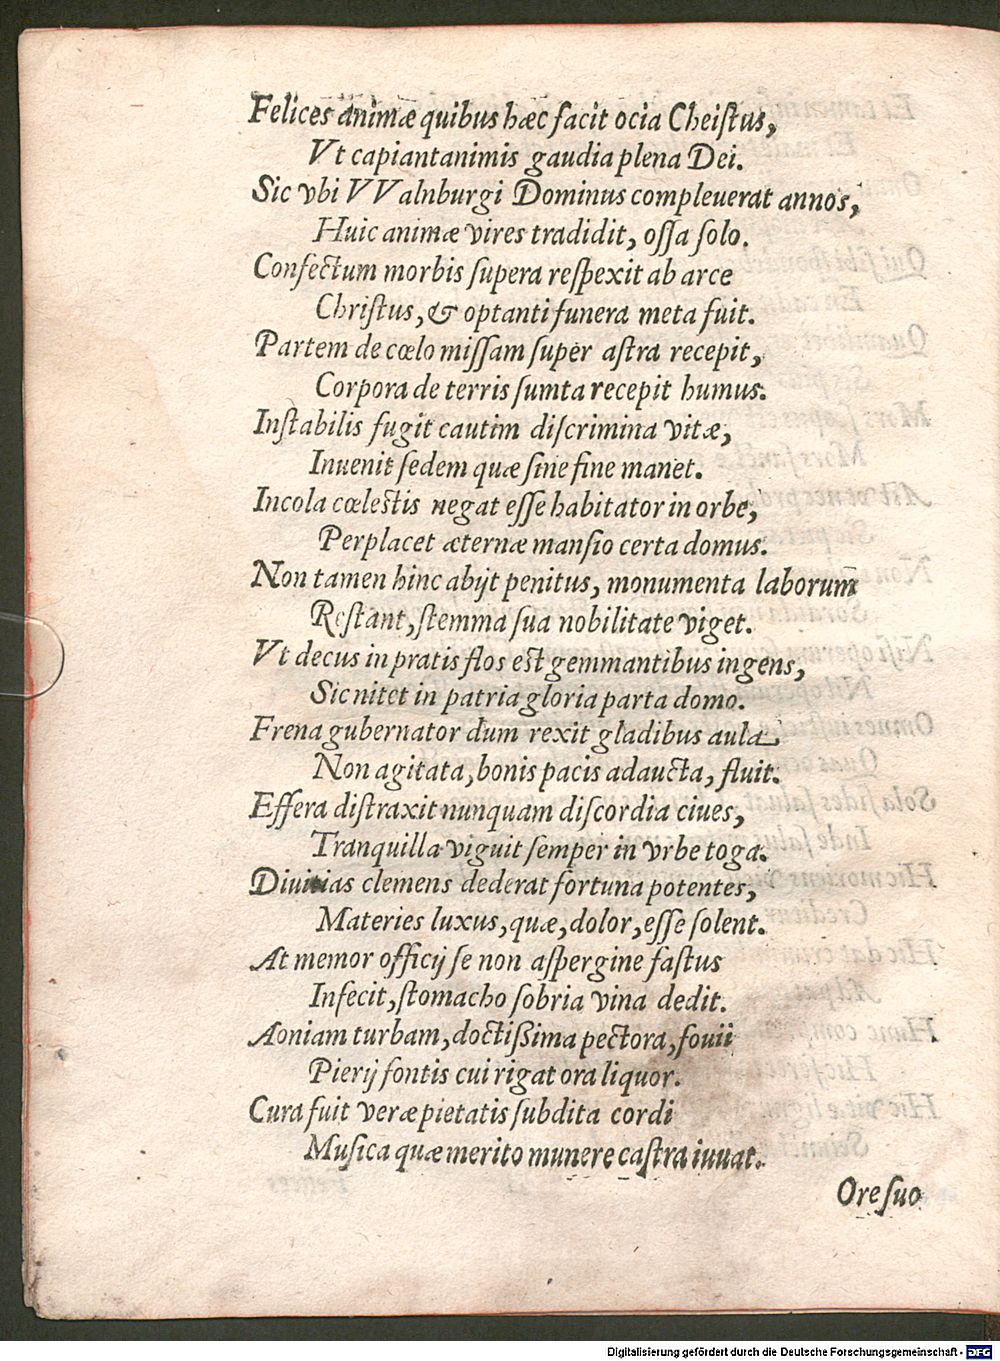 Felices animæ quibus hæc facit ocia Cheiſtus,
Vt capiantanimis gaudia plena Dei.
Sic vbi VValnburgi Dominus compleuerat annos,
Huic animæ vires tradidit, oſſa ſolo.
Confectum morbis ſupera reſpexit ab arce
Chriſtus, & optanti funera meta fuit.
Partem de cœlo miſſam ſuper aſtra recepit,
Corpora de terris ſumta recepit humus.
Inſtabilis fugit cautim diſcrimina vitæ,
Inuenit ſedem quæ ſine fine manet.
Incola cœleſtis negat eſſe habitator in orbe,
Perplacet æternæ manſio certa domus.
Non tamen hinc abijt penitus, monumenta laborum
Reſtant, ſtemma ſua nobilitate viget.
Vt decus in pratis flos eſt gemmantibus ingens,
Sic nitet in patria gloria parta domo.
Frena gubernator dum rexit gladibus aula
Non agitata, bonis pacis adaucta, fluit.
Effera diſtraxit nunquam diſcordia ciues,
Tranquilla viguit ſemper in vrbe toga.
Diuitias clemens dederat fortuna potentes,
Materies luxus, quæ, dolor, eſſe ſolent.
At memor officij ſe non aſpergine faſtus
Infecit, ſtomacho ſobria vina dedit.
Aoniam turbam, doctißima pectora, fouii
Pierij fontis cui rigat ora liquor.
Cura fuit veræ pietatis ſubdita cordi
Muſica quæ merito munere caſtra iuuat.
Ore ſuo
Digitalisierung gefördert durch die Deutsche Forschungsgemeinschaft - DFG